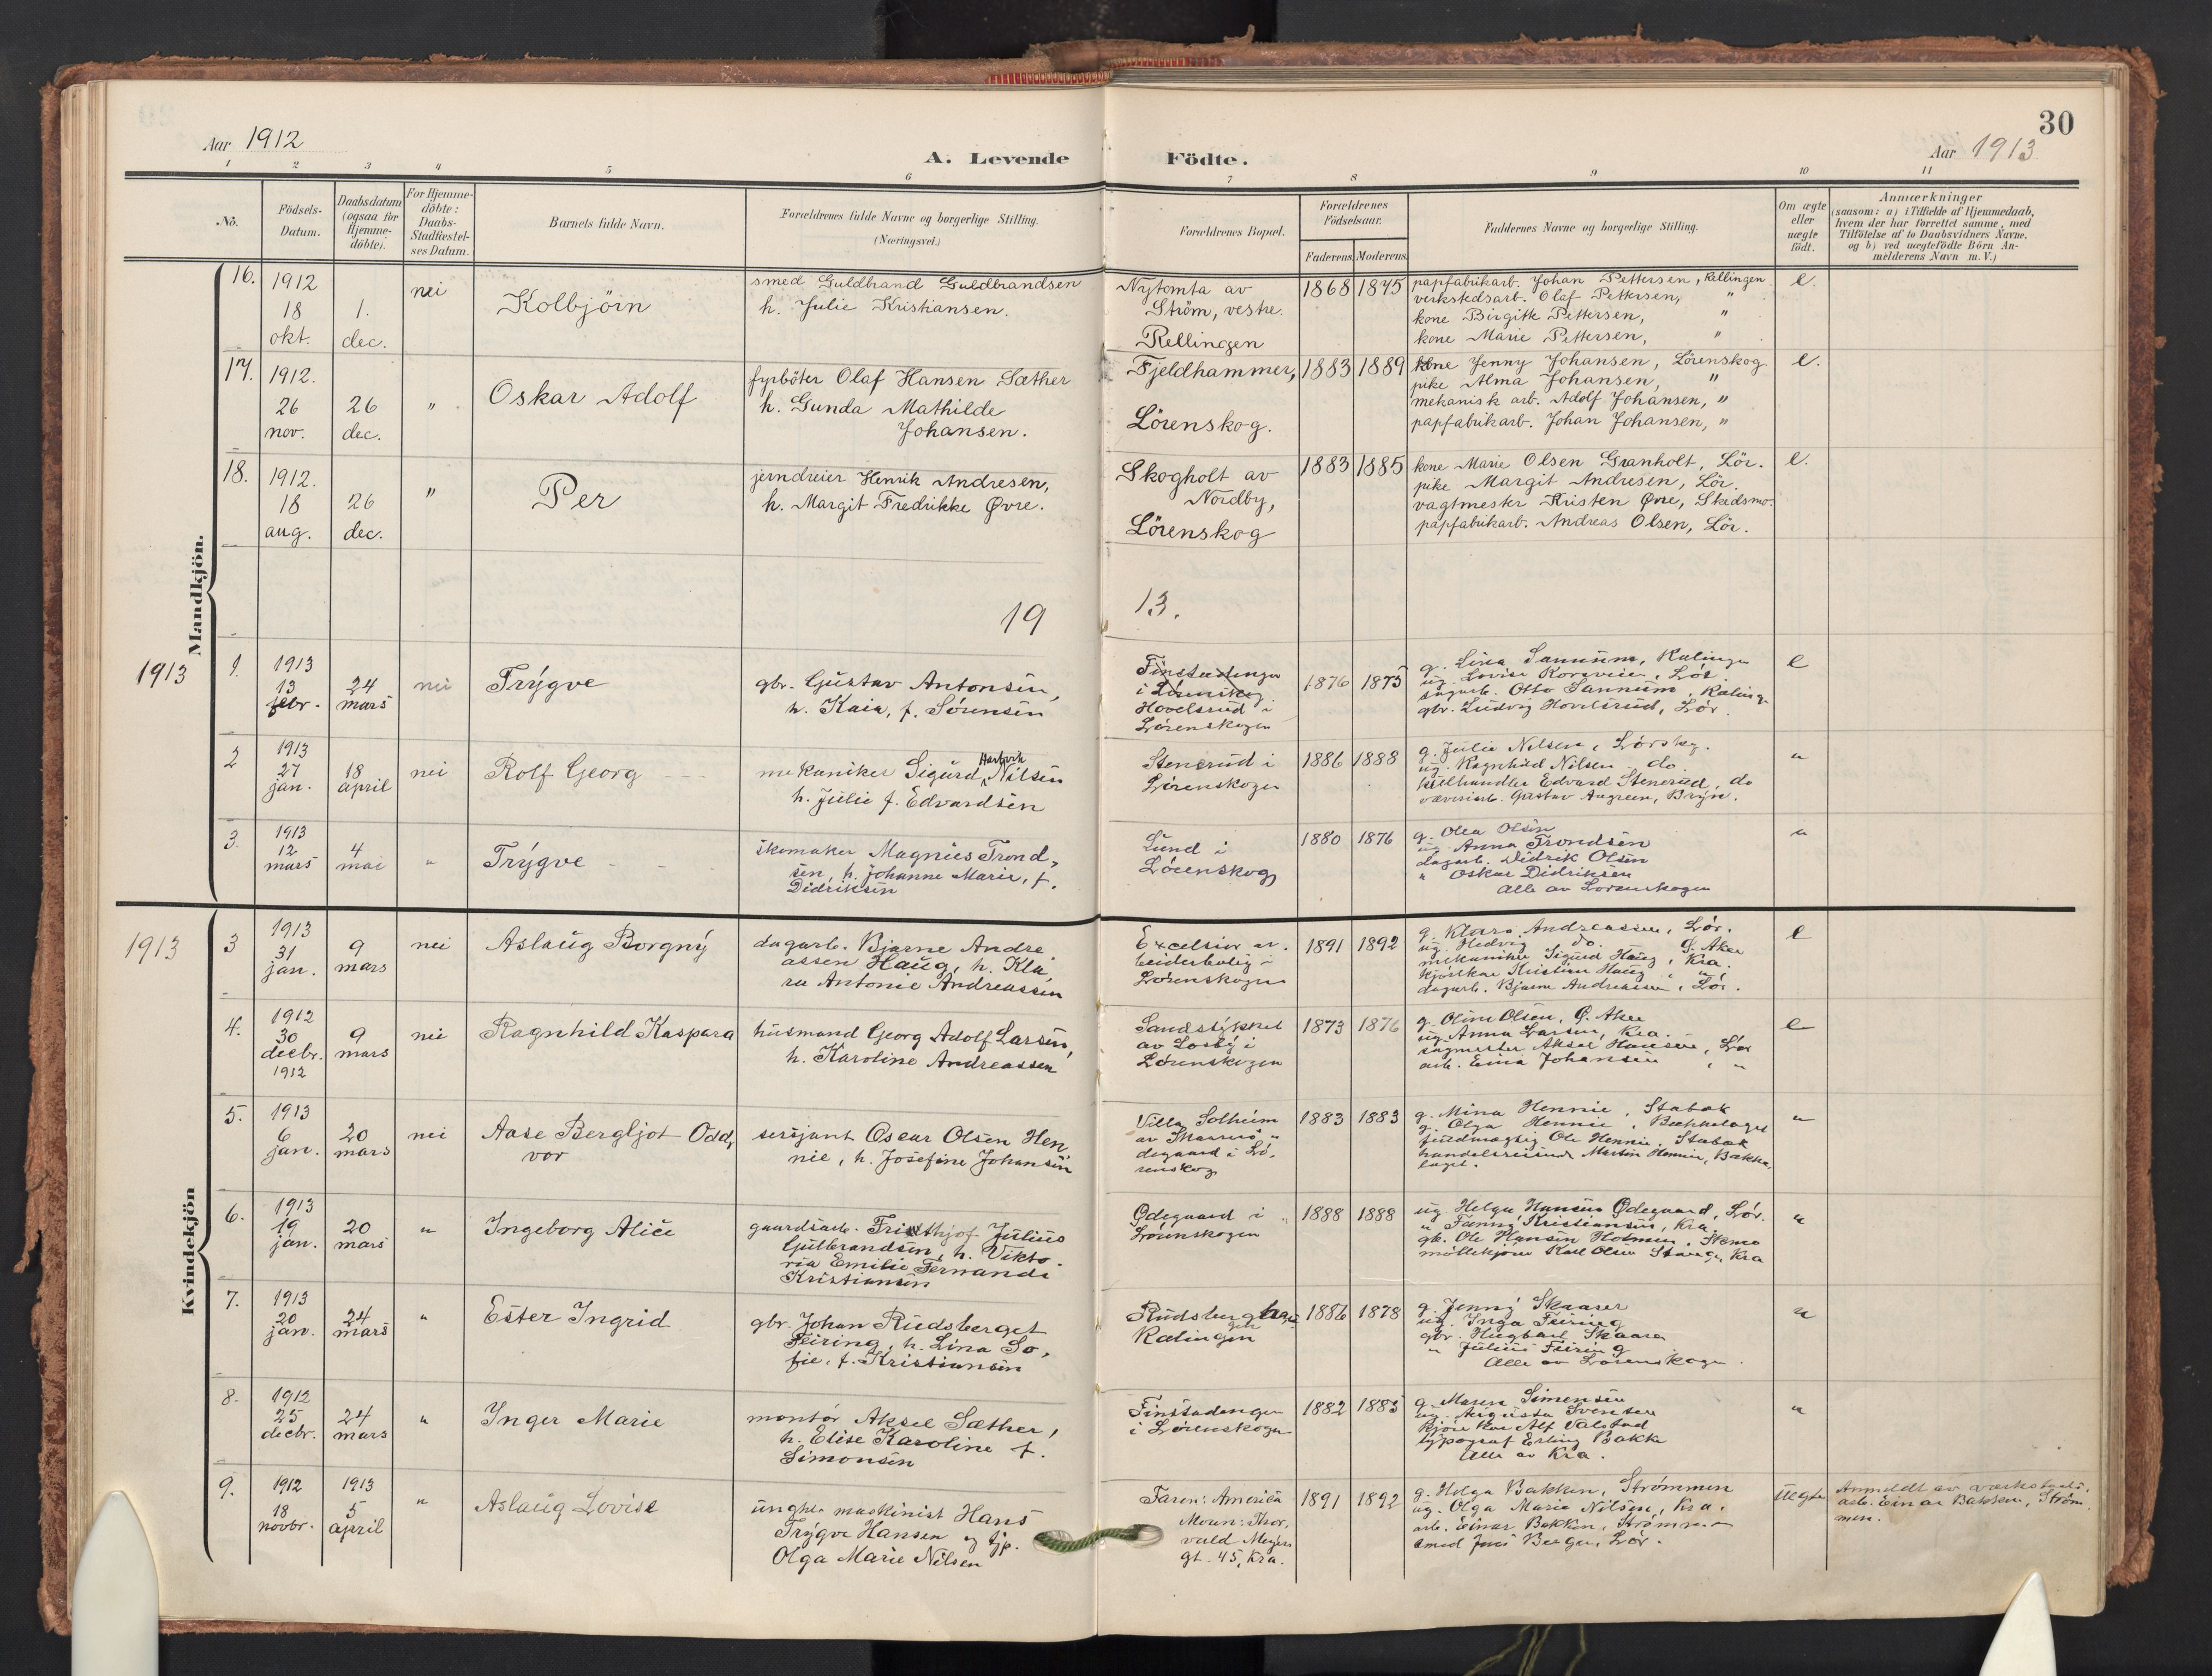 30
Aar 1912
A. Levende Födte.
Aar 1913
1 2 3 4 5 6 7 8 9 10 11
No.
Födsels-Datum.
Daabsdatum (ogsaa for Hjemmedöbte).
For Hjemmedöbte: Daabs-Stadfæstelses Datum.
Barnets fulde Navn.
Forældrenes fulde Navne og borgerlige Stilling.
(Næringsvei.)
Forældrenes Bopæl.
Forældrenes Födselsaar.
Faderens. Moderens.
Faddernes Navne og borgerlige Stilling.
Om ægte eller uægte födt.
Anmærkninger
(saasom: a) i Tilfælde af Hjemmedaab,
hvem der har forrettet samme, med
Tilföielse af to Daabsvidners Navne,
og b) ved uægtefödte Börn Anmelderens Navn m. V.)
Mandkjön.
16. 1912 18 okt. 1. dec. nei
Kolbjörn
smed Guldbrand Guldbrandsen
h. Julie Kristiansen.
Nytomta av
Ström, vestre.
Rellingen
1868 1875
papfabrikarb. Johan Pettersen, Rellingen
verkstedsarb. Olaf Pettersen, "
kone Birgitte Pettersen, "
kone Marie Pettersen, "
e.
17. 1912. 26 nov. 26 dec. "
Oskar Adolf
fyrböter Olaf Hansen Sæther
h. Gunda Mathilde
Johansen.
Fjeldhammer,
Lörenskog.
1883 1889
kone Jenny Johansen, Lörenskog
pike Alma Johansen, "
mekanisk arb. Adolf Johansen, "
papfabrikarb. Johan Johansen, "
e.
18. 1912. 18 aug. 26 dec. "
Per
jerndreier Henrik Andresen,
h. Margit Fredrikke Øvre.
Skogholt av
Nordby,
Lörenskog
1883 1885
kone Marie Olsen Granholt, Lör.
pike Margit Andresen, Lör.
vagtmester Kristen Øvre, Skedsmo.
papfabrikarb. Andreas Olsen, Lör.
e.
19 13.
1913
1. 1913 13 febr. 24 mars nei
Trygve
gbr. Gustav Antonsen,
h. Kaia, f. Sørensen
Finstadengen
i Lørenskog
Hovelsrud i
Lørenskogen
1876 1875
g. Lina Sannum, Ralingen
ug. Lovise Korsveien, Lör.
sagarb. Otto Sannum, Raling.
gbr. Ludvig Hovelsrud, Lör.
e
2 1913 27 jan. 18 april nei
Rolf Georg
mekaniker Sigurd Hartvik Nilsen
h. Julie f. Edvardsen
Stenerud i
Lørenskogen
1886 1888
g. Julie Nilsen, Lörskg.
ug. Ragnhild Nilsen do.
Edvard Stenerud, do
Gustav Bryn.
"
3. 1913 12 mars 4 mai "
Trygve
skomaker Magnus Trond,
sen, h. Johanne Marie, f.
Didriksen
Lund i
Lørenskog
1880 1876
g. Olea Olsen
ug. Anna Trondsen
dagarb. Didrik Olsen
" Oskar Didriksen
Alle av Lørenskogen
"
Kvindekjön
1913
3 1913 31 jan. 9 mars nei
Aslaug Borgny
dagarb. Bjarne Andre
assen Haug, h. Kla,
ra Antonie Andreassen
Excelsior ar.
beiderbolig i
Lørenskogen
1891 1892
g. Klara Andreassen, Lör.
ug. Hedvig do. Ø. Aker
mekaniker Sigurd Haug, Kra.
kjørekar Kristian Haug, "
dagarb. Bjarne Andreassen, Lör.
e
4. 1912 30 decbr. 1912 9 mars nei
Ragnhild Kaspara
husmand Georg Adolf Larsen,
h. Karoline Andreassen
Sandstykket
av Losby i
Lørenskogen
1873 1876
g. Oline Olsen, Ø. Aker
ug. Anna Larsen, Kra.
sagmester Aksel Hansen, Lör
arb. Einar Johansen, "
e
5. 1913 6 jan. 20 mars nei
Aase Bergljot Odd,
vor
sersjant Oscar Olsen Hen,
nie, h. Josefine Johansen
Villa Solheim
av Skaarer ø,
degaard i Lö,
renskog
1883 1883
g. Mina Hennie, Stabæk
g. Olga Hennie, Bækkelaget
fuldmægtig Ole Hennie, Stabæk
handelsreisende Martin Hennie, Bække,
laget.
"
6. 1913 19 jan. 20 mars "
Ingeborg Alice
gaardsarb. Fridthjof Julius
Gulbrandsen, h. Vikto.
ria Emilie Fernanda
Kristiansen
Ødegaard i
Lørenskogen
1888 1888
ug. Helga Hansen Ødegaard, Lör.
" Fanny Kristiansen, Kra.
gb. Ole Hansen Holmen,
møllekjører Karl Olsen Stange, Kra
"
7. 1913 20 jan. 24 mars "
Ester Ingrid
gbr. Johan Rudsberget
Feiring, h. Lina So,
fie, f. Kristiansen
Rudsberget
Ralingen
1886 1878
g. Jenny Skaarer
ug. Inga Feiring
gbr. Skaarer
" Julius Feiring
Alle av Lørenskogen.
"
8. 1912 25 decbr. 24 mars "
Inger Marie
montør Aksel Sæther,
h. Elise Karoline f.
Simonsen
Finstadengen
i Lørenskogen
1882 1885
g. Maren Simensen
ug. Augusta Svensen
kjørekar Alf Valstad
typograf Erling Bakke
Alle av Kra.
"
9. 1912 18 novbr. 1913 5 april "
Aslaug Lovise
ungkar maskinist Hans
Trygve Hansen og tjp.
Olga Marie Nilsen
Faren: America
Moren: Thor,
vald Meyers
gt. 45, Kra.
1891 1892
g. Helga Bakken, Strømmen
ug. Olga Marie Nilsen, Kra.
arb. Einar Bakken, Strømmen
smed Jens Berger, Lör.
Uegte
Anmeldt av verksteds.
arb. Einar Bakken, Strøm
men.